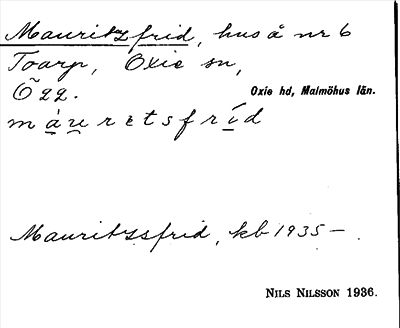 Mauritzfrid, hus å nr 6
Toarp, Oxie sn,
Oxie hd, Malmöhus län.
måuretsfríd
Mauritzsfrid, kb 1935 –.
NILS NILSSON 1936.